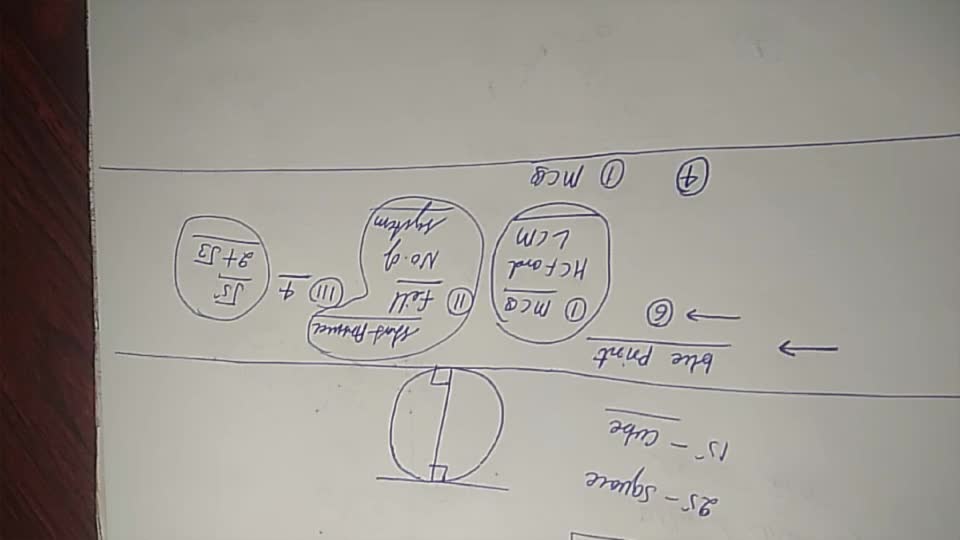 25 - square
15 - cube
blue Print
→ ⑥
① MCQ
HCF and
LCM
② Fill
No. of
system
Short Answer
③ 4
√5
2+√3
④ ① MCQ